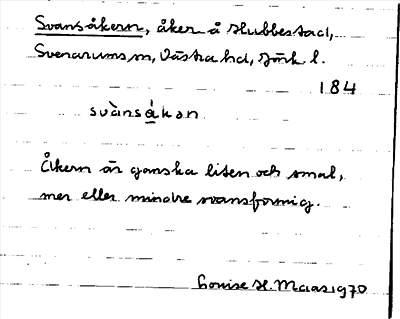 Svansåkern, åker å Hubbestad,
Svenarums sn, Västra hd, Jönk. l.
184
svànsákan
Åkern är ganska liten och smal,
mer eller mindre svansformig.
Louise H. Maas 1970